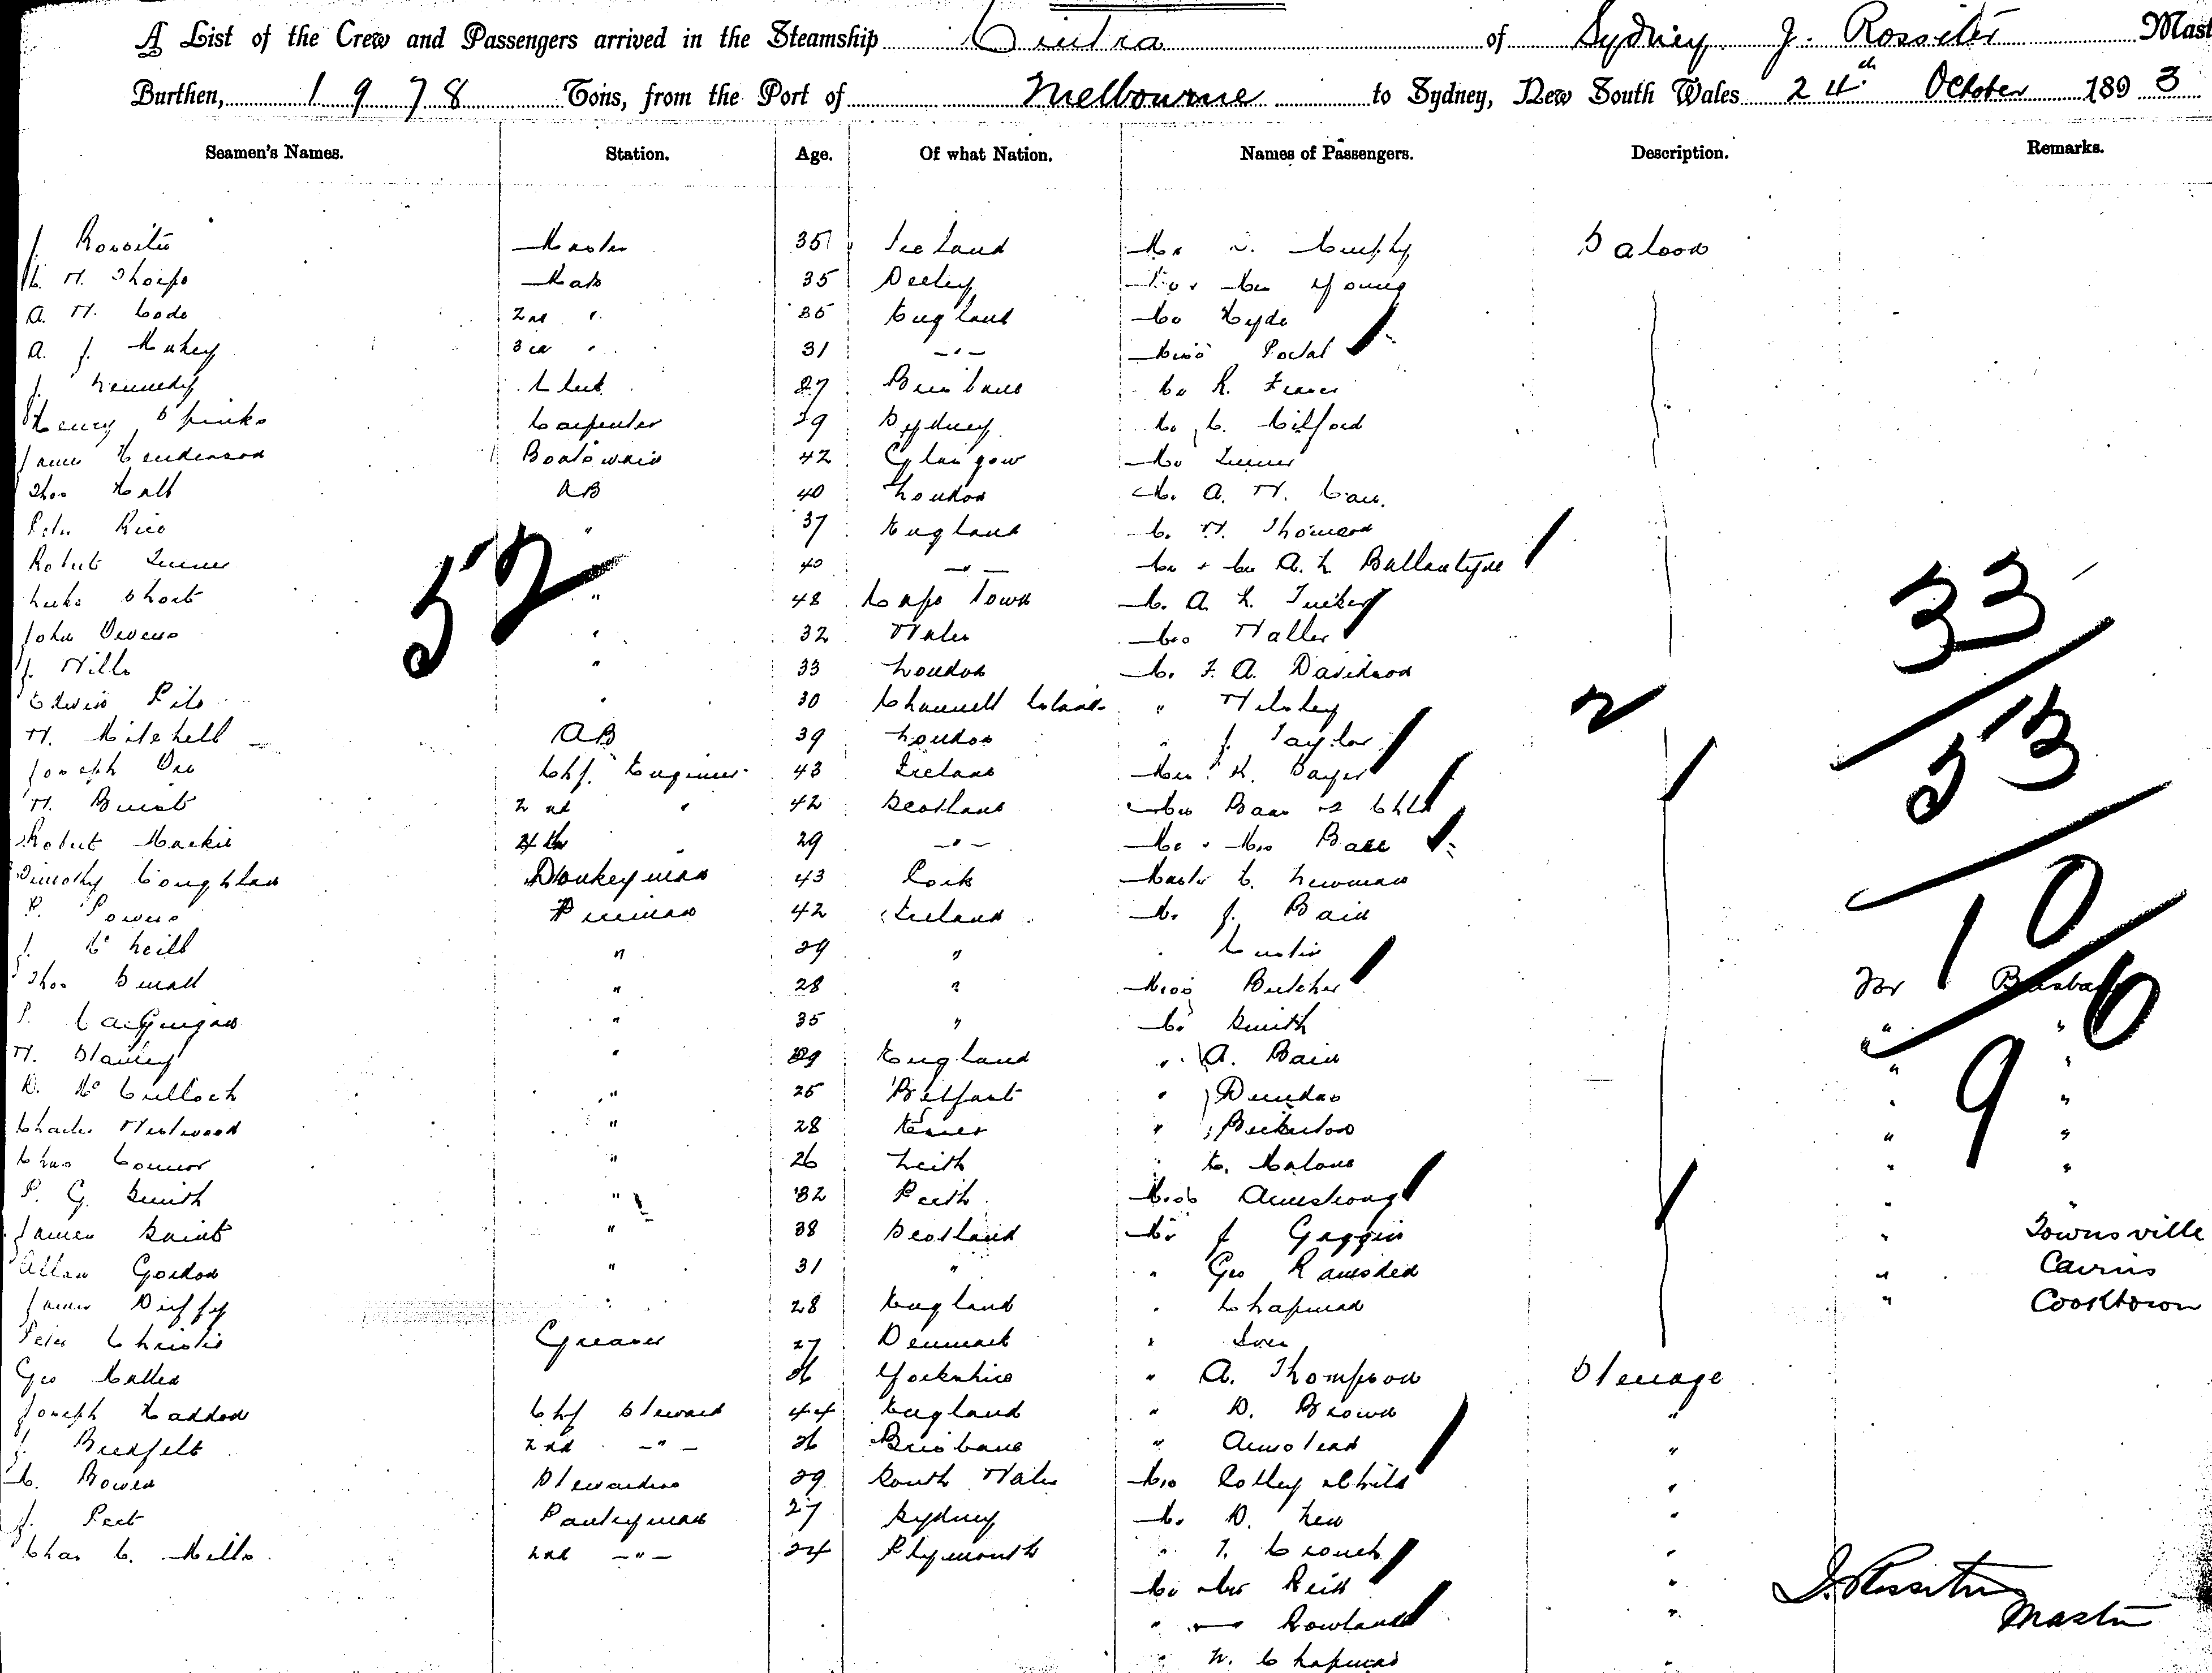 A List of the Crew and Passengers arrived in the Steamship Cintra of Sydney J. Rossiter Mast
Burthen, 1978 Tons, from the Port of Melbourne to Sydney, New South Wales 24th October 1893
Seamen's Names. Station. Age. Of what Nation. Names of Passengers. Description. Remarks.
J. Rossiter Master 35 Scotland Mr Murphy Saloon
W. Thorpe Mate 35 Young
A. W. 2nd " 35 England Mr Hyde
A. J. 3rd " 31 — " — Miss Postal
J. Kennedy Clerk 27 Brisbane Mr R. Fraser
Henry Spinks Carpenter 29 Sydney Mr C. Milford
James Henderson Boatswain 42 Glasgow Mr Turner
Thos Hall AB 40 London Mr A. W. Carr.
Peter Rice " 37 England W. Thomson
Robert Turner 40 — " — Mr & Mrs A. L. Ballantyne
Luke Short " 48 Cape Town Mr A. L. Tucker
John Devens " 32 Wales Mrs Waller
52
33
J. Mills " 33 London Mr F. A. Davidson
Edwin Pile " 30 Channell Islands "
W. Mitchell AB 39 London " J. Taylor
2
53
Joseph Orr Chf. Engineer 43 Ireland Mrs K. Sayer
W. Buist 2nd " 42 Scotland Mrs Barr & Chld
Robert Mackie 4th " 29 — " — Mr & Mrs Barr
Timothy Coughlan Donkeyman 43 Cork Master C. Newman
P. Powers Fireman 42 Ireland Mr J. Bain
10
J. McNeill " 29 " " Custin
Thos Small " 28 " Miss Butcher For Brisbane
P. " 35 " Mr Smith " "
96
W. Stanley " 29 England " A. Bain " "
D. McCulloch " 25 Belfast " Dundas " "
Charles Westwood " 28 Essex " Bickerton " "
Chas Connor " 26 Leith " C. Malone " "
P. G. Smith " 32 Perth Miss Armstrong " "
James Saint " 38 Scotland Mr J Gaggin " Townsville
Allan Gordon " 31 " " Geo Ramsden " Cairns
James Duffy " 28 England " Chapman " Cooktown
Peter Christie Greaser 27 Denmark " Ives
Geo Mallen 26 Yorkshire " A. Thompson Steerage
Joseph Haddon Chf Steward 44 England " D. Brown "
J. Bredfelt 2nd — " — 26 Brisbane " Armstead "
M. Bowen Stewardess 29 South Wales Mrs Colley & Child "
J. Peet Pantryman 27 Sydney Mr D. New "
Chas C. Mills 2nd — " — 24 Plymouth " T. Crouch "
Mr & Mrs Reid "
" — Rowland "
" W. Chapman "
J. Rossiter
Master